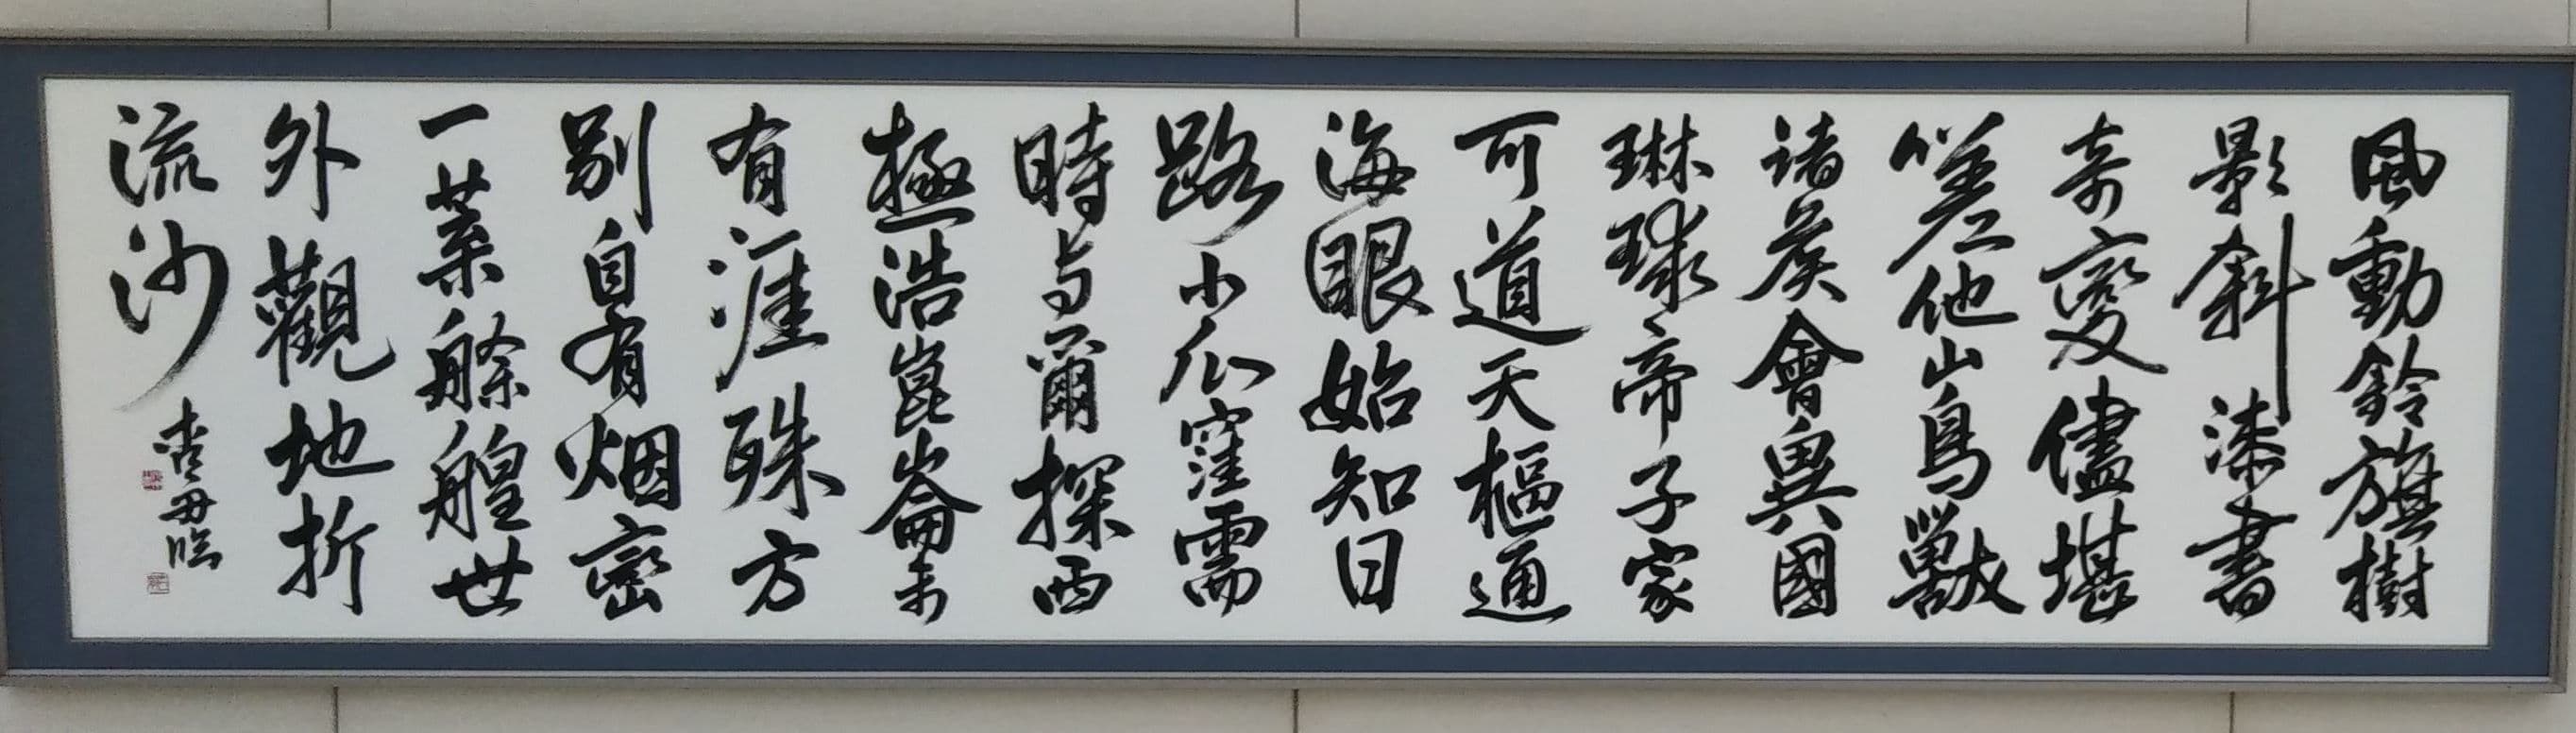 風動鈴旗樹
影斜漆書
奇變儘堪
嗟他山鳥獸
諸侯會異國
琳球帝子家
可道天樞通
海眼始知日
路小瓜窪需
時与爾探西
極浩崑崙未
有涯殊方
別自有烟巒
一葉艅艎世
外觀地折
流沙
臨